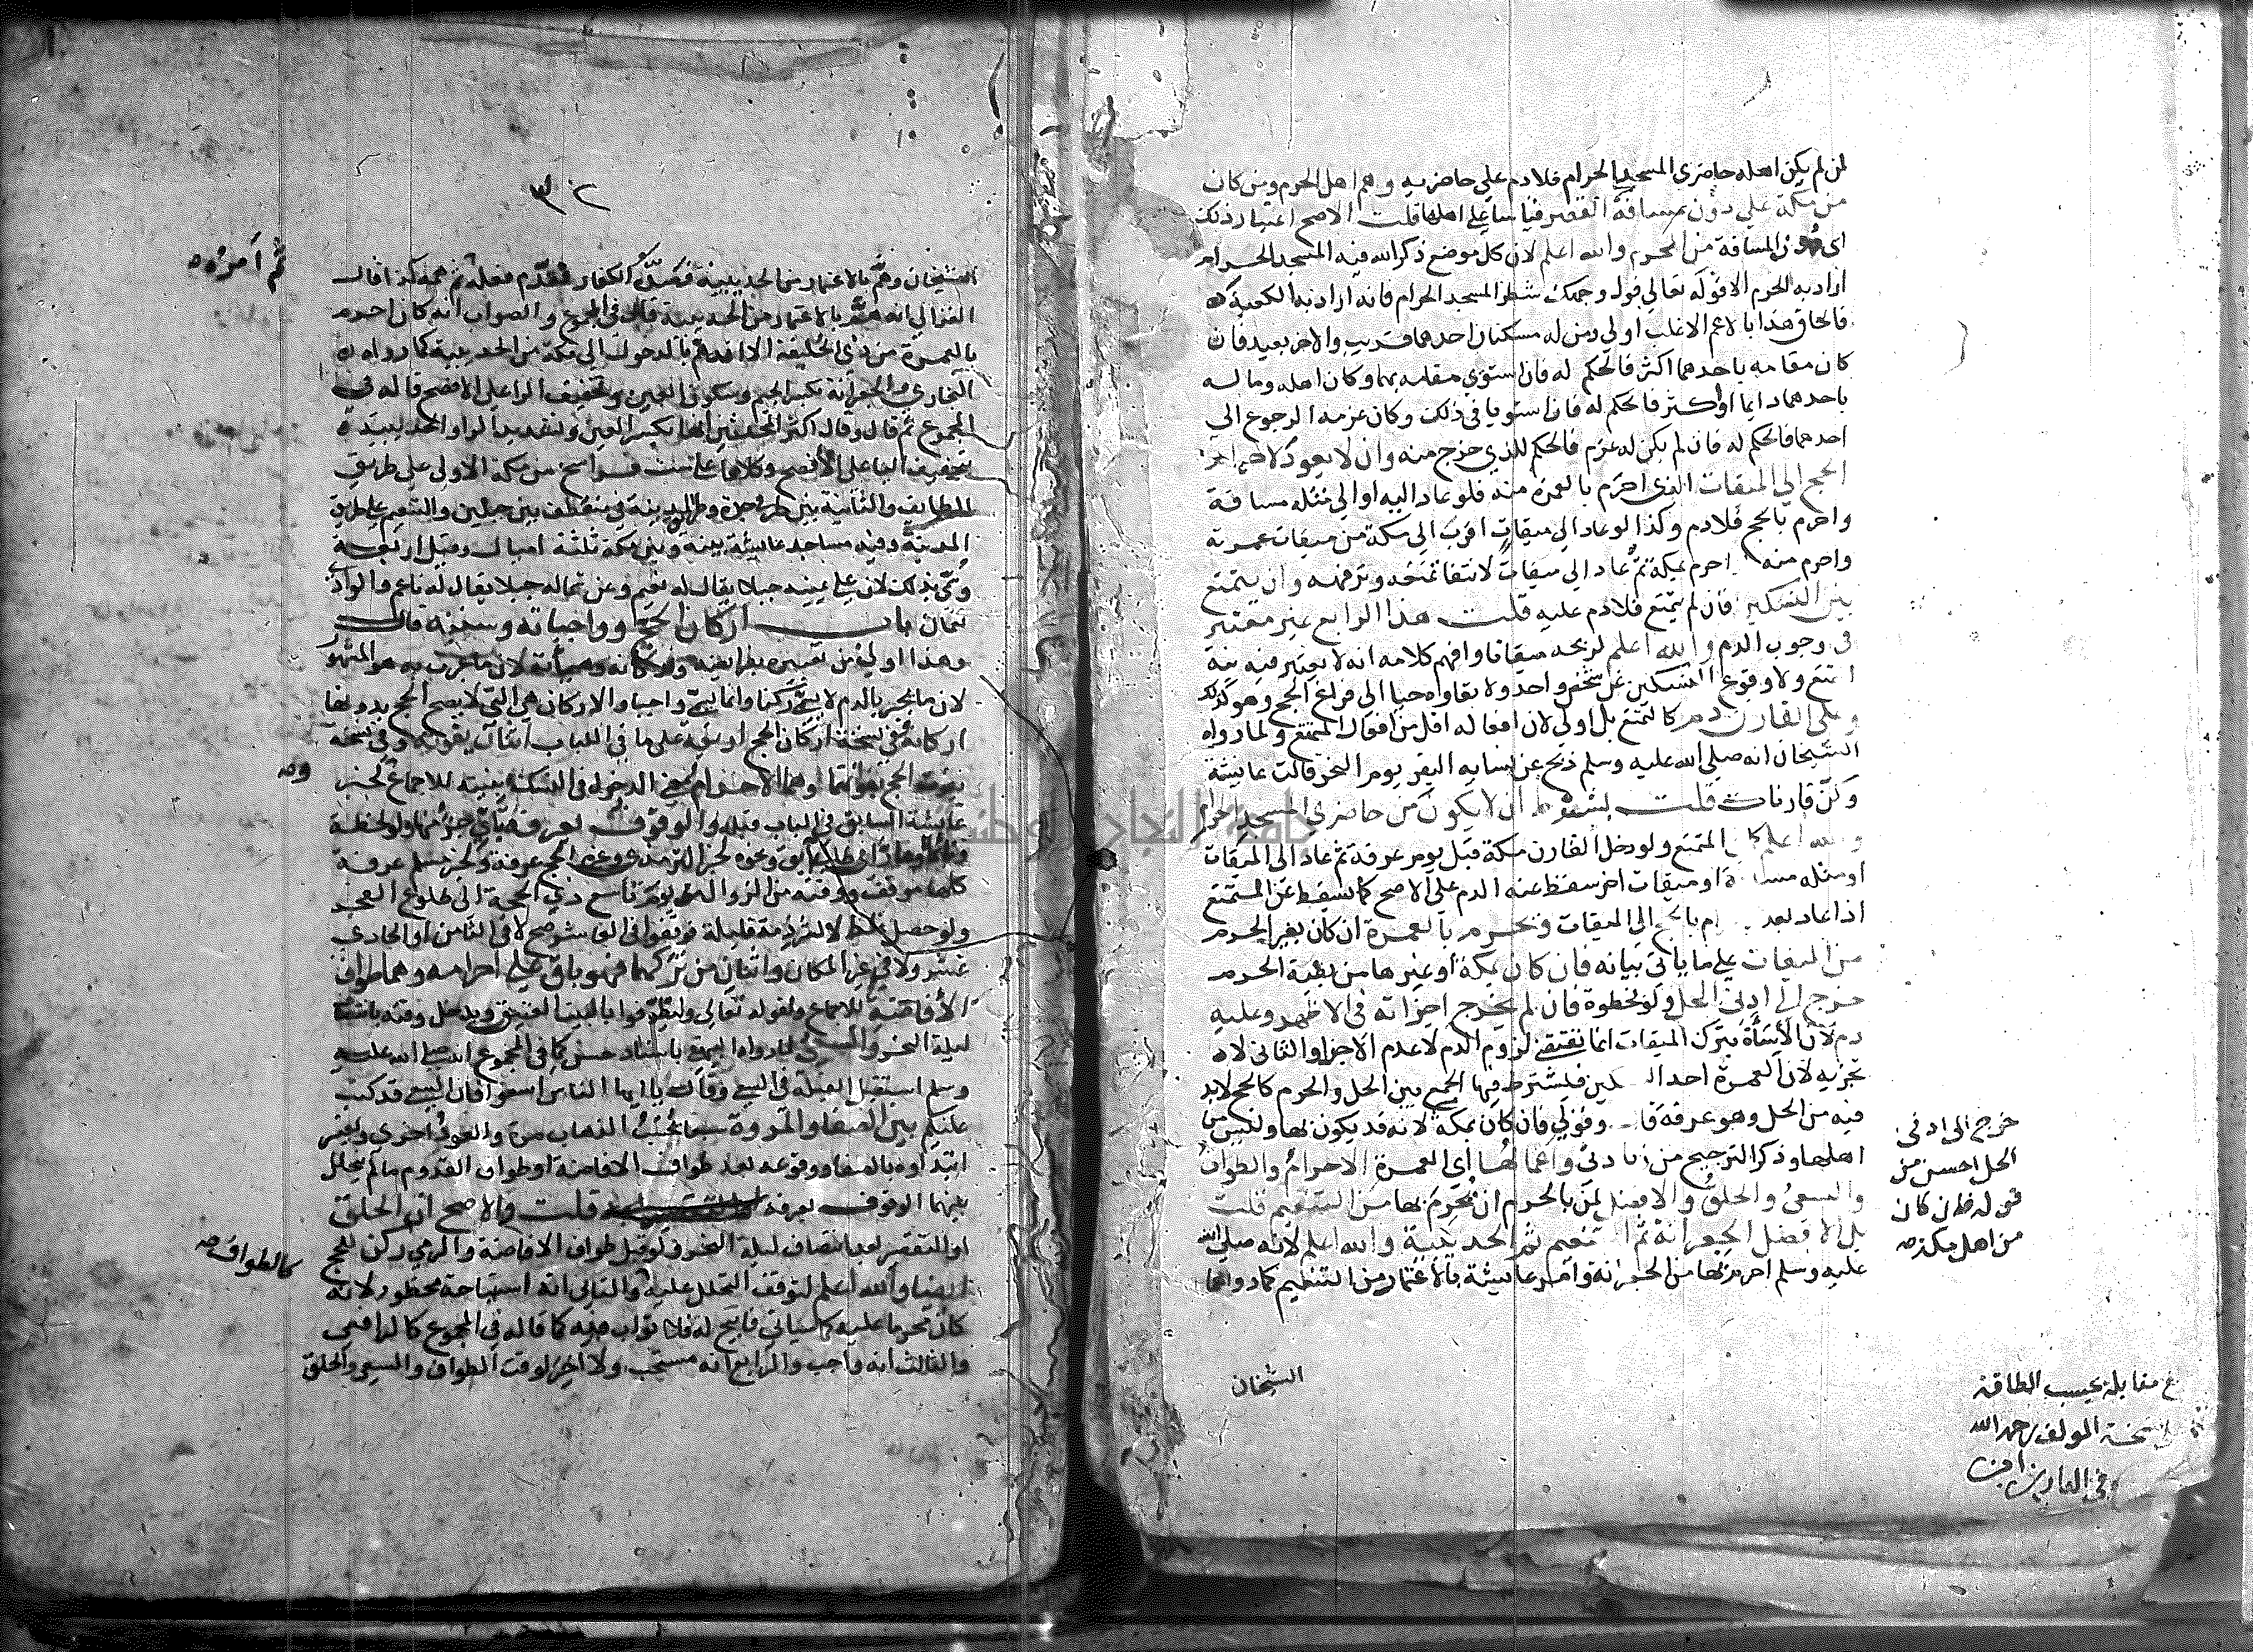 لمن لم يكن اهله حاضرى المسجد الحرام فلا دم على حاضريه وهم اهل الحرم ومن كان
من مكة على دون مسافة القصر قياسا على اهلها قلت الاصح اعتبار ذلك
اى دون المسافة من الحرم والله اعلم لان كل موضع ذكر الله فيه المسجد الحرام
اراد به الحرم الا قوله تعالى فول وجهك شطر المسجد الحرام فانه اراد به الكعبة
فالحاق هذا بالاعم الاغلب اولى ومن له مسكنان احدهما قريب والاخر بعيد فان
كان مقامه باحدهما اكثر فالحكم له فان استوى مقامه بهما وكان اهله وماله
باحدهما دايما او اكثر فالحكم له فان استويا فى ذلك وكان عزمه الرجوع الى
احدهما فالحكم له فان لم يكن له عزم فالحكم للذي خرج منه وان لا يعود لاحرام
الحج الى الميقات الذى احرم بالعمرة منه فلو عاد اليه او الى مثله مسافة
واحرم بالحج فلا دم وكذا لو عاد الى ميقات اقرب الى مكة من ميقات عمرته
واحرم منه احرم بمكة ثم عاد الى ميقات لانتفا تمتعه وترفهه وان يتمتع
بين النسكين فان لم يتمتع فلا دم عليه قلت هذا الرابع غير معتبر
فى وجوب الدم والله اعلم لربحه ميقاتا وافهم كلامه انه لا يعتبر فيه نية
التمتع ولا وقوع النسكين عن شخص واحد ولا بقاوه حيا الى فراغ الحج وهو كذلك
وعلى القارن دم كالتمتع بل اولى لان افعاله اقل من افعال المتمتع ولما رواه
الشيخان انه صلى الله عليه وسلم ذبح عن نسايه البقر يوم النحر قالت عايشة
وكن قارنات قلت بشرط ان لا يكون من حاضرى المسجد الحرام
والله اعلم كالمتمتع ولو دخل القارن مكة قبل يوم عرفة ثم عاد الى الميقات
او مثله مسافة او ميقات اخر سقط عنه الدم على الاصح كما يسقط عن المتمتع
اذا عاد بعد بالحج الى الميقات ويحرم بالعمرة ان كان بغير الحرم
من الميقات على ما ياتى بيانه فان كان بمكة او غيرها من بقية الحرم
خرج الى ادنى الحل ولو بخطوة فان لم يخرج اجزاته فى الاظهر وعليه
دم لان الاساة بترك الميقات انما تقتضى لزوم الدم لا عدم الاجزا والثانى لا
تجزيه لان العمرة احد فيشترط فيها الجمع بين الحل والحرم كالحج لابد
فيه من الحل وهو عرفة وقولى فان كان بمكة لانه قد يكون بها وليس من
اهلها وذكر الترجيح من زيادتى واعمالها اى العمرة الاحرام والطواف
والسعى والحلق والافضل لمن بالحرم ان يحرم بها من التنعيم قلت
بل الافضل الجعرانة ثم التنعيم ثم الحديبية والله اعلم لانه صلى الله
عليه وسلم احرم بها من الجعرانة وامر عايشة بالاعتمار من التنعيم كما رواهما
الشيخان
خرج الى ادنى
الحل احسن من
قوله فان كان
من اهل مكة صح
مقابلة بحسب الطاقة
نسخة المولف رحمه الله
٣٢
الشيخان وهم بالاعتمار من الحديبية فصده الكفار فقدم فعله ثم همه كذا قال
ثم امره صح
الغزالى انه هم بالاعتمار من الحديبية قال فى المجموع والصواب انه كان احرم
بالعمرة من ذى الحليفة الا انه هم بالدخول الى مكة من الحديبية كما رواه
البخارى والجعرانة بكسر الجيم وسكون العين وتخفيف الرا على الافصح قاله فى
المجموع ثم قال وقال اكثر المحدثين انها بكسر العين وتشديد الرا والحديبية
بتخفيف اليا على الافصح وكلاهما على ستة فراسخ من مكة الاولى على طريق
الطايف والثانية بين طريق جدة وطريق المدينة فى منعطف بين جبلين والتنعيم على طريق
المدينة وفيه مساجد عايشة بينه وبين مكة ثلثة اميال وقيل اربعة
وسمى بذلك لان على يمينه جبلا يقال له نعيم وعن شماله جبلا يقال له ناعم والوادى
نعمان باب اركان الحج وواجباته وسننه قال
وهذا اولى من تعبيره لان ما عبرت به هو المشهور
لان ما يجبر بالدم لا يسمى ركنا وانما يسمى واجبا والاركان هى التى لا يصح الحج بدونها
اركانه وفى نسخة اركان الحج اربعة على ما فى اللباب اثنان يفوته وفى نسخة
يفوت الحج بفواتهما وهما الاحرام بمعنى الدخول فى النسك بنيته للاجماع لخبر
وصح
عايشة السابق فى الباب قبله والوقوف بعرفة باى جزء منها ولو لحظة
ونحوه لخبر الترمذى وغيره الحج عرفة ولخبر مسلم عرفة
كلها موقف ووقته من الزوال يوم تاسع ذى الحجة الى طلوع الفجر
ولو حصل غلط لا لشرذمة قليلة فوقفوا فى العاشر صح لا فى الثامن او الحادى
عشر ولا فى غير المكان واثنان من تركهما فهو باق على احرامه وهما طواف
الافاضة للاجماع ولقوله تعالى وليطوفوا بالبيت العتيق ويدخل وقته بانتصاف
ليلة النحر والسعى لما رواه البيهقى باسناد حسن كما فى المجموع انه صلى الله عليه
وسلم استقبل القبلة فى السعى وقال يا ايها الناس اسعوا فان السعى قد كتب
عليكم بين الصفا والمروة سبعا يحسب الذهاب مرة والعود اخرى ويعتبر
ابتداوه بالصفا ووقوعه بعد طواف الافاضة او طواف القدوم ما لم يتخلل
بينهما الوقوف بعرفة قلت والاصح ان الحلق
او التقصير بعد انتصاف ليلة النحر ولو قبل طواف الافاضة والرمى ركن للحج
كالطواف صح
ايضا والله اعلم لتوقف التحلل عليه والثانى انه استباحة محظور لانه
كان محرما عليه كما سياتى فابيح له فلا ثواب فيه كما قاله فى المجموع كالرافعى
والثالث انه واجب والرابع انه مستحب ولا اخر لوقت الطواف والسعى والحلق